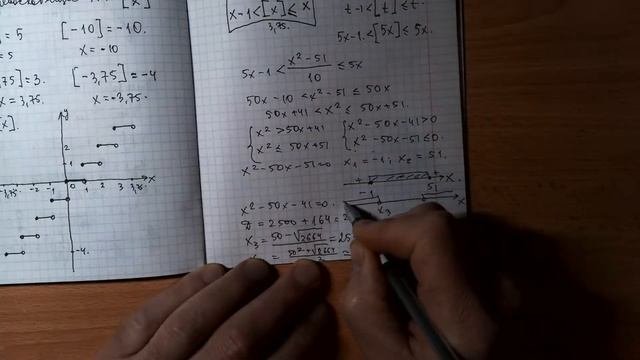 [x]
= 5 [-10] = -10.
= 5 x = -10
,75] = 3. [-3,75] = -4
x = 3,75. x = -3,75.
x].
y
2
1
-3,75 -2 -1 1 2 3 3,75 x
-4
x-1 < [x] ≤ x
3,75.
t-1 < [t] ≤ t.
5x-1 < [5x] ≤ 5x.
5x-1 < x²-51/10 ≤ 5x
50x-10 < x²-51 ≤ 50x
50x+41 < x² ≤ 50x+51.
{ x² > 50x+41 { x²-50x-41>0
{ x² ≤ 50x+51 { x²-50x-51≤0.
x²-50x-51=0 x₁=-1; x₂=51.
+ + x
-1 51
x₃ x
x²-50x-41=0.
D = 2500+164=2
x₃ = 50-√2664 = 25